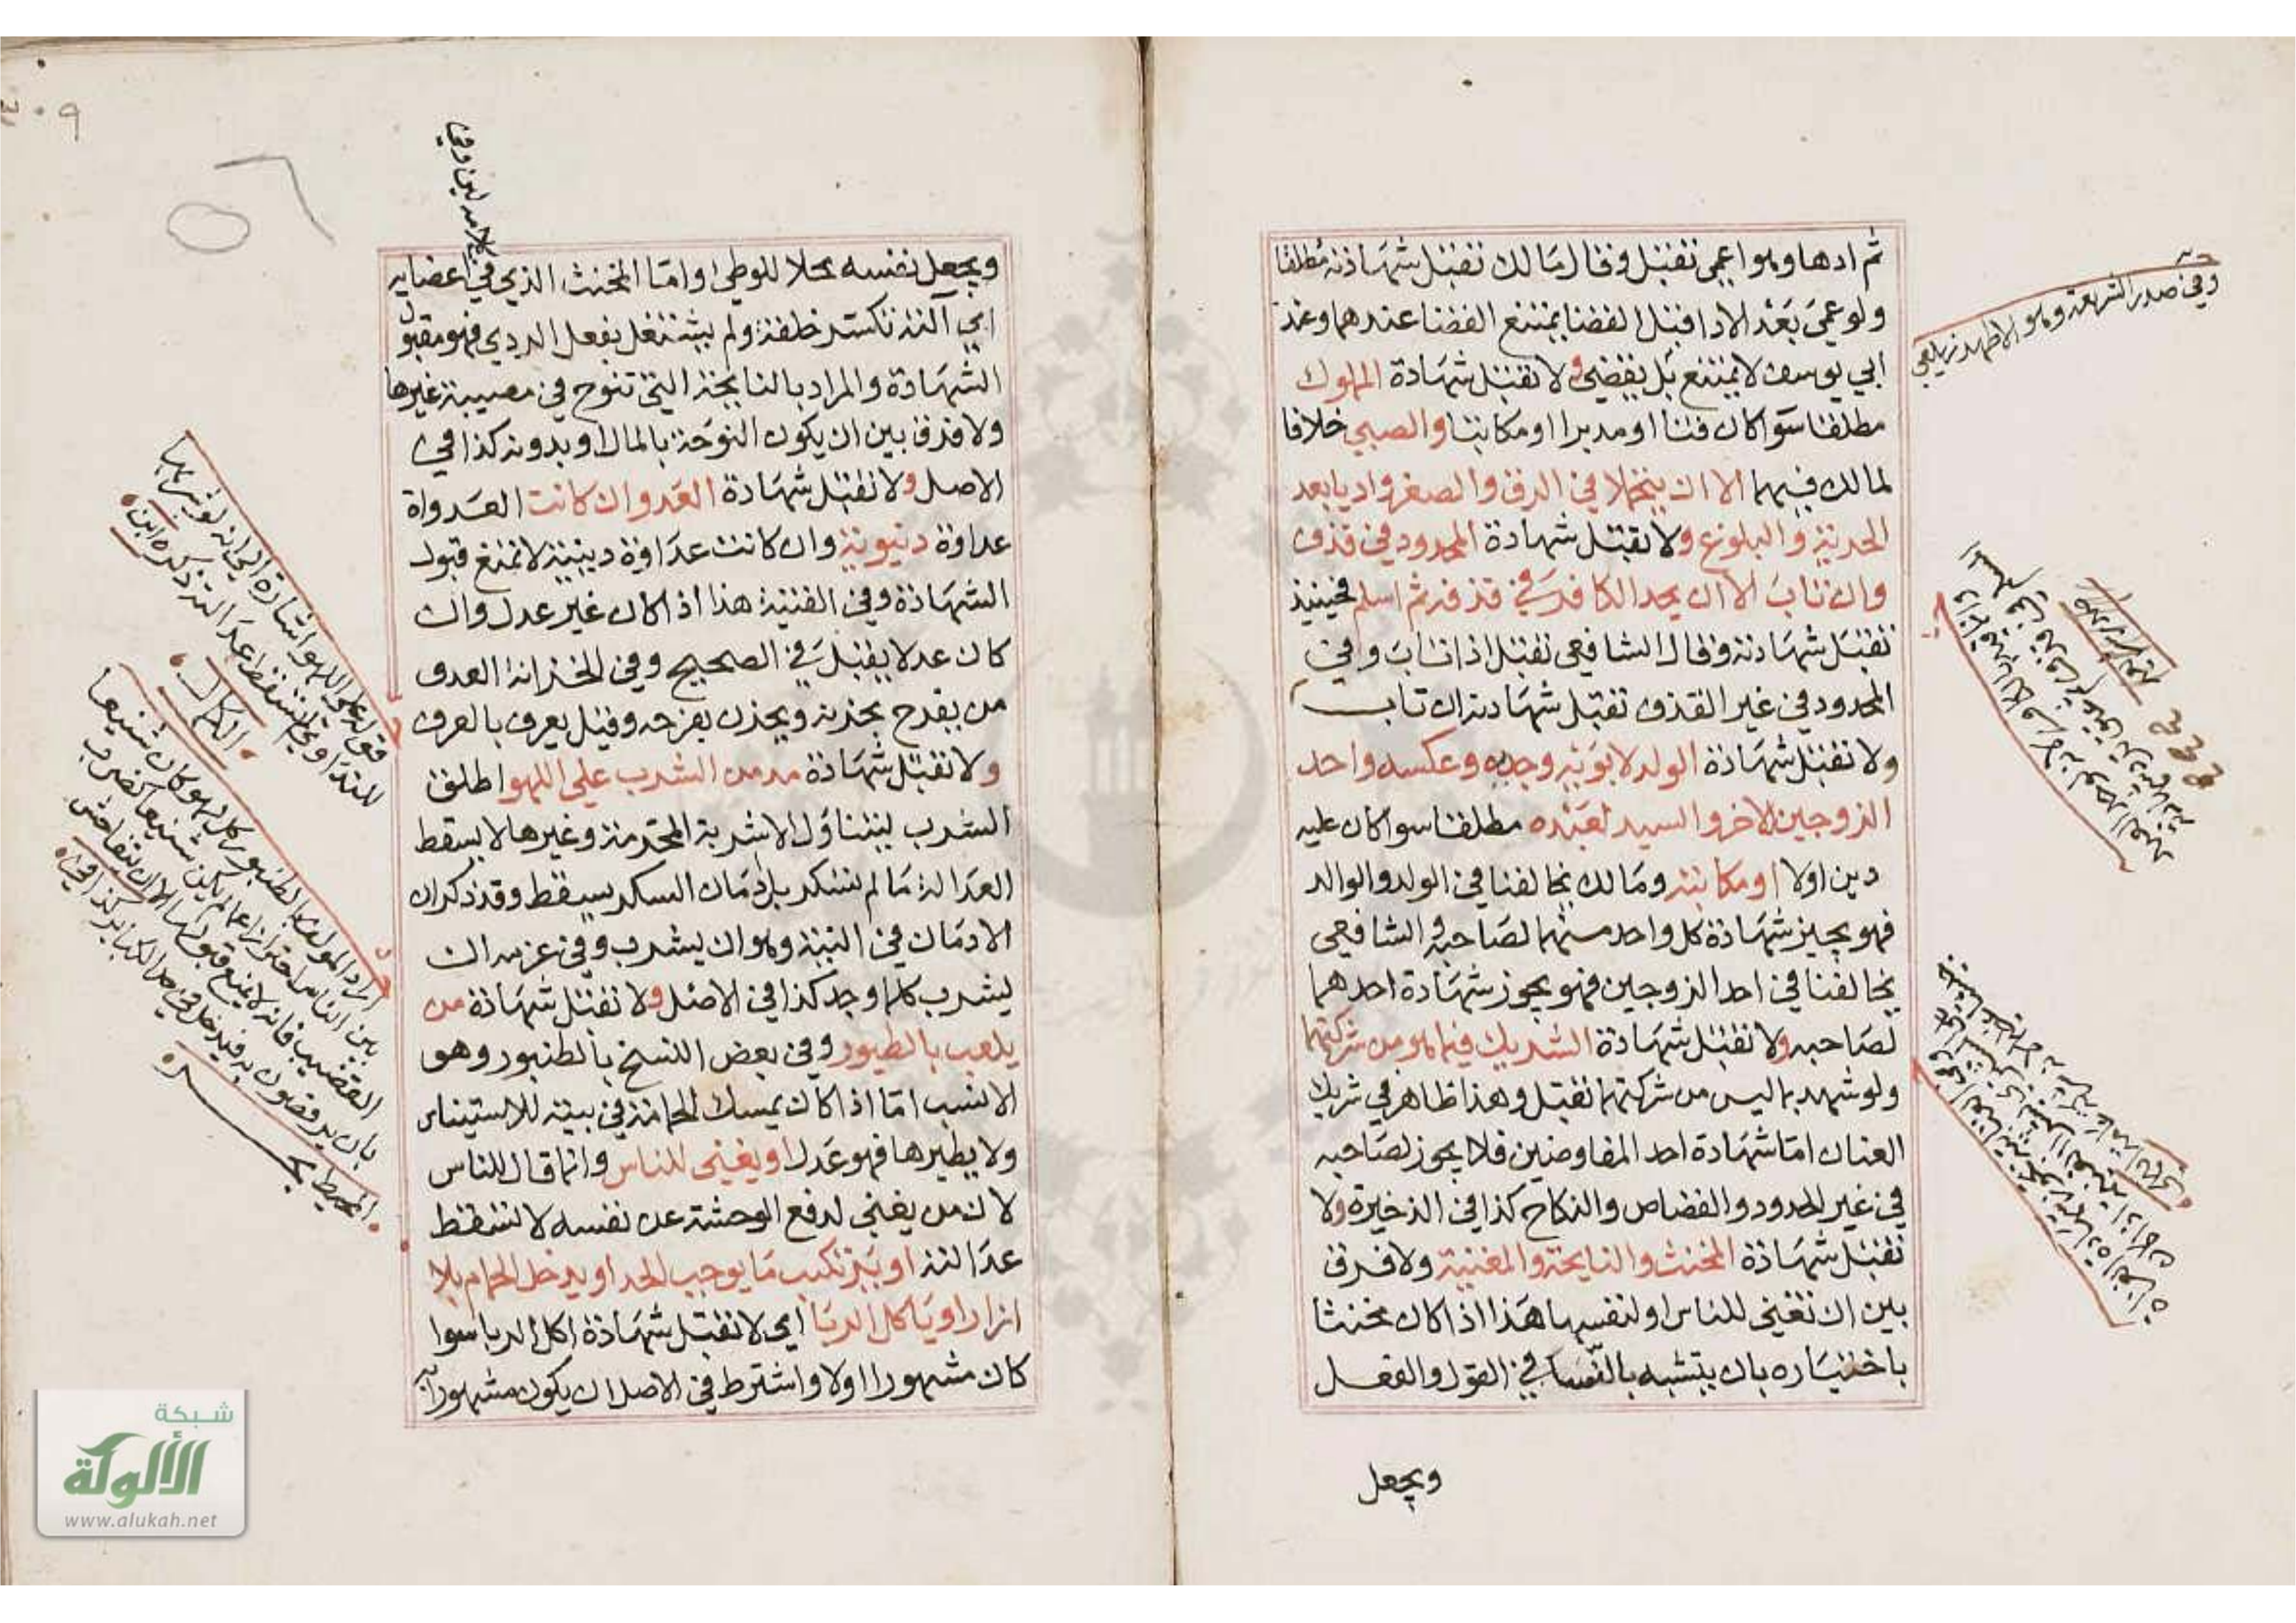 ثم ادها وهو اعمى تقبل وقال مالك تقبل شهادته مطلقا
ولو عمي بعد الادا قبل القضا يمتنع القضا عندهما وعند
ابي يوسف لا يمتنع بل يقضي ولا تقبل شهادة المملوك
مطلقا سوا كان قنا او مدبرا او مكاتبا والصبي خلافا
لمالك فيهما الا ان يتحملا في الرق والصغر واديا بعد
الحرية والبلوغ ولا تقبل شهادة المحدود في قذف
وان تاب الا ان يحد الكافر في قذف ثم اسلم فحينيذ
تقبل شهادته وقال الشافعي تقبل اذا تاب وفي
المحدود في غير القذف تقبل شهادته ان تاب
ولا تقبل شهادة الولد لابويه وجديه وعكسه واحد
الزوجين للاخر والسيد لعبده مطلقا سوا كان عليه
دين اولا او مكاتبه ومالك يخالفنا في الولد والوالد
فهو يجيز شهادة كل واحد منهما لصاحبه والشافعي
يخالفنا في احد الزوجين فهو يجوز شهادة احدهما
لصاحبه ولا تقبل شهادة الشريك فيما هو من شركتهما
ولو شهد بما ليس من شركتهما تقبل وهذا ظاهر في شريك
العنان اما شهادة احد المفاوضين فلا يجوز لصاحبه
في غير الحدود والقصاص والنكاح كذا في الذخيرة ولا
تقبل شهادة المخنث والنايحة والمغنية ولا فرق
بين ان تغني للناس او لنفسها هذا اذا كان مخنثا
باختياره بان يتشبه بالنسا في القول والفعل
ويجعل
وفي صدر الشريعة وهو الاظهر زيلعي
ويجعل نفسه محلا للوطي واما المخنث الذي في اعضايه
اي آلته تكسر خلقة ولم يشتغل بفعل الردي فهو مقبول
الشهادة والمراد بالنايحة التي تنوح في مصيبة غيرها
ولا فرق بين ان يكون النوحة بالمال او بدونه كذا في
الاصل ولا تقبل شهادة العدو ان كانت العدواة
عداوة دنيوية وان كانت عداوة دينية لا تمنع قبول
الشهادة وفي القنية هذا اذا كان غير عدل وان
كان عدلا يقبل في الصحيح وفي الخزانة العدو
من يفرح بحزنه ويحزن بفرحه وقيل يعرف بالعرف
ولا تقبل شهادة مدمن الشرب على اللهو اطلق
الشرب ليتناول الاشربة المحرمة وغيرها لا يسقط
العدالة ما لم يسكر بل ادمان السكر يسقط وقد ذكر ان
الادمان في النية وهو ان يشرب وفي عزمه ان
يشرب كلما وجد كذا في الاصل ولا تقبل شهادة من
يلعب بالطيور وفي بعض النسخ بالطنبور وهو
الانسب اما اذا كان يمسك الحمامة في بيته للاستيناس
ولا يطيرها فهو عدل او يغني للناس وانما قال للناس
لان من يغني لدفع الوحشة عن نفسه لا تسقط
عدالته او يرتكب ما يوجب الحد او يدخل الحمام بلا
ازار او ياكل الربا اي لا تقبل شهادة اكل الربا سوا
كان مشهورا اولا واشترط في الاصل ان يكون مشهورا به
قوله على اللهو اشارة الى انه لو شربها
للتداوي لا تسقط عدالته ذكره ابن
الكمال
اراد المولف بالطنبور كل لهو كان شنيعا
بين الناس احترازا عما لم يكن شنيعا كضرب
القضيب فانه لا يمنع قبولها الا ان يتفاحش
بان يرقصون به فيدخل في حد الكباير كذا في
المحيط بحر
٣٠٩
شبكة
الألوكة
www.alukah.net